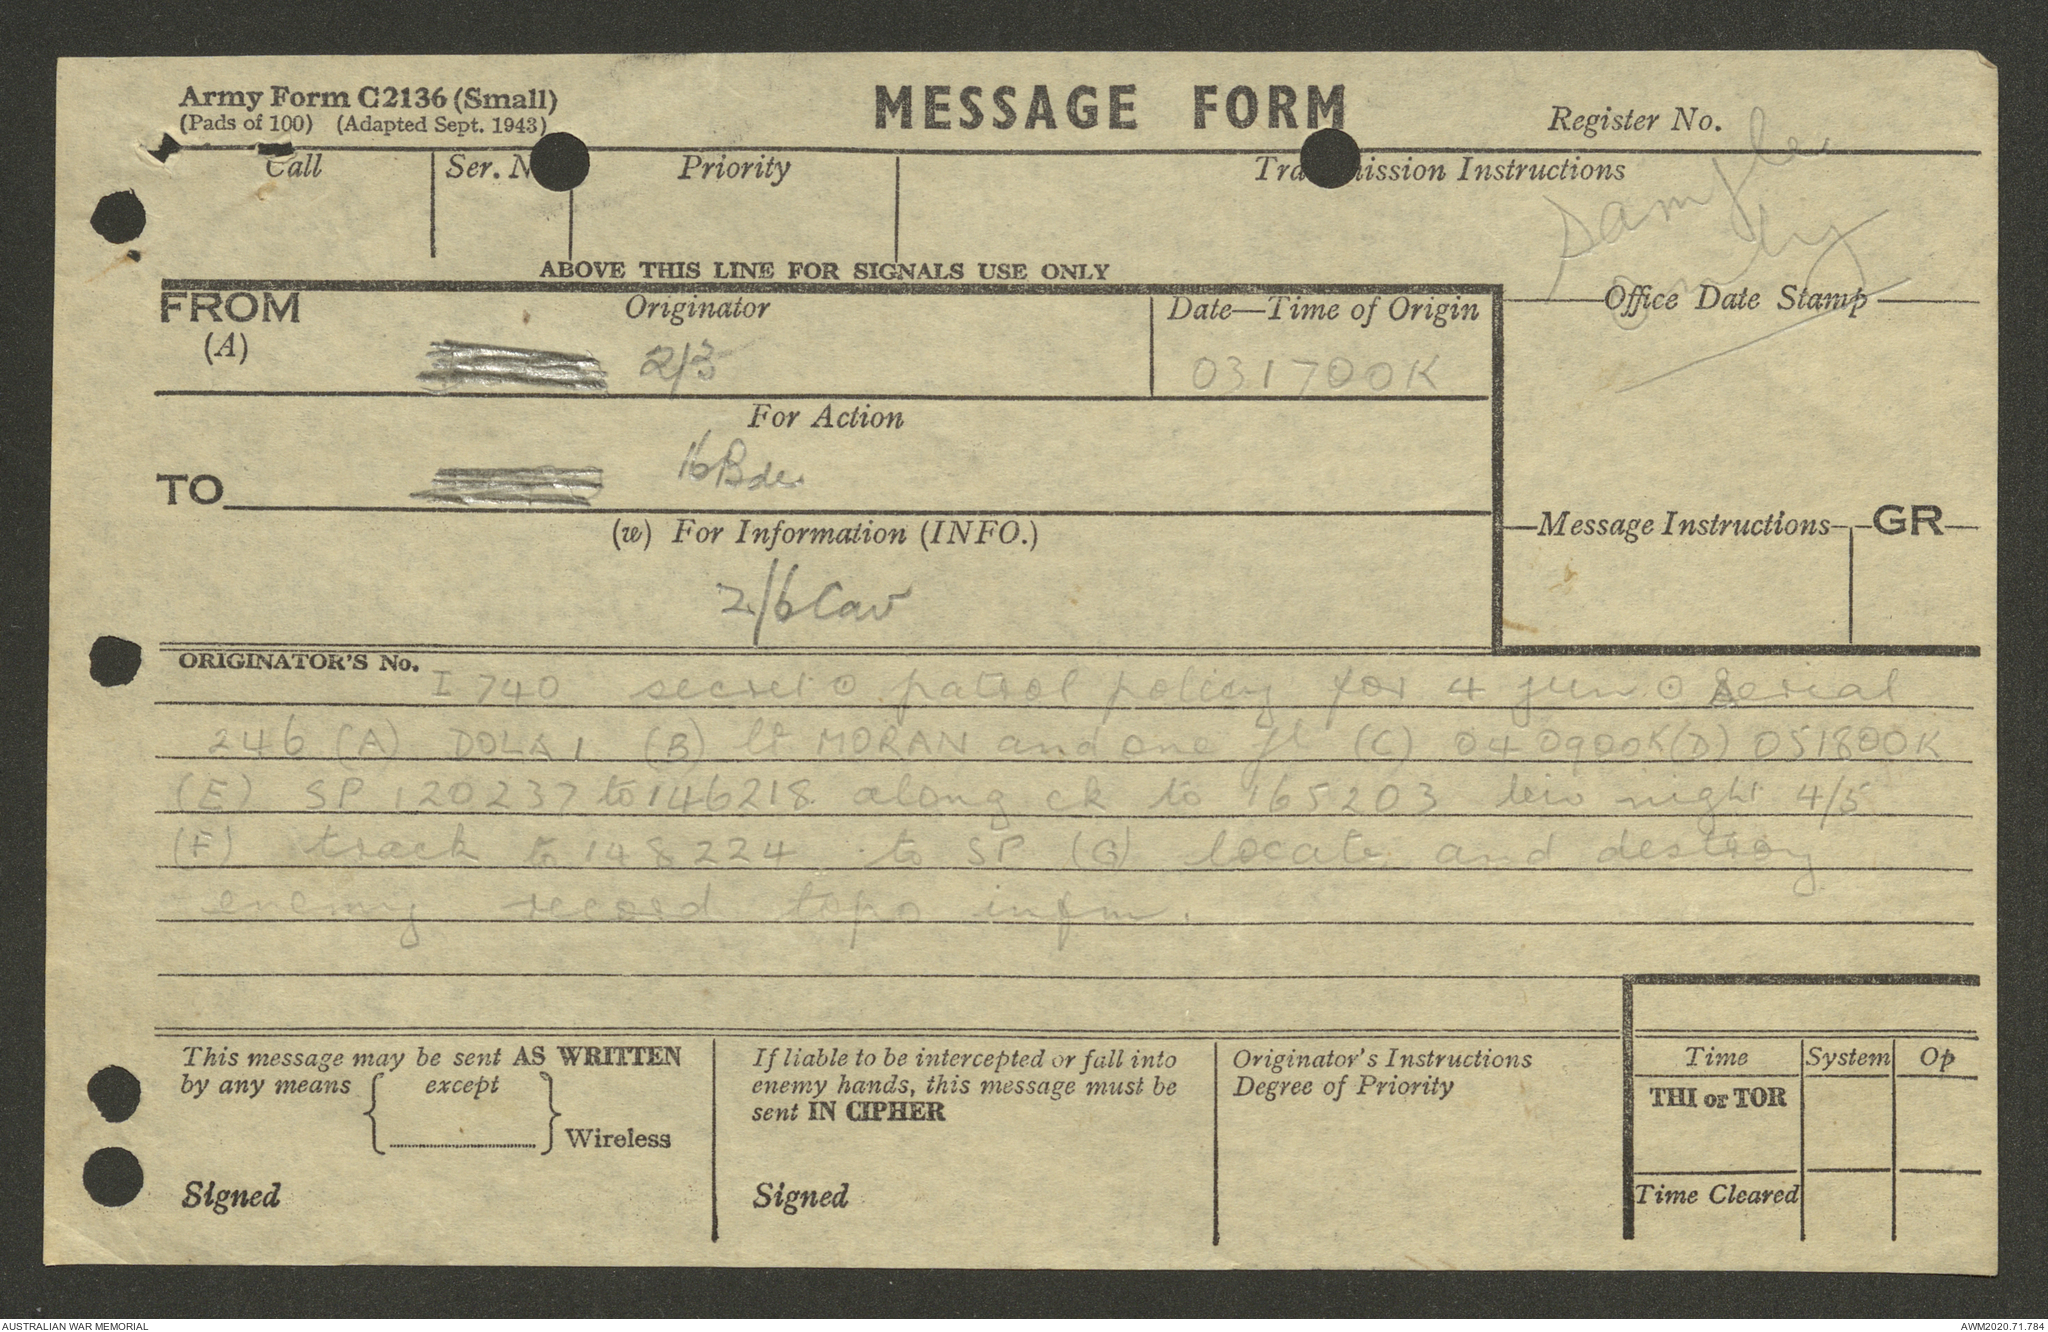 Army Form C2136 (Small)
(Pads of 100) (Adapted Sept. 1943)
MESSAGE FORM
Register No.
Sample
only
Call
Ser. N
Priority
Tra mission Instructions
ABOVE THIS LINE FOR SIGNALS USE ONLY
FROM
(A)
Originator
2/3
Date—Time of Origin
031700K
Office Date Stamp
For Action
TO
16 Bde
(w) For Information (INFO.)
2/6 Cav
Message Instructions
GR
ORIGINATOR'S No.
I 740 secret ⊙ patrol policy for 4 jun ⊙ serial
246 (A) DOLA 1 (B) lt MORAN and one pl (C) 040900K (D) 051800K
(E) SP 120237 to 146218 along ck to 165203 biv night 4/5
(F) track to 148224 to SP (G) locate and destroy
enemy record topo infm.
This message may be sent AS WRITTEN
by any means { except } Wireless
Signed
If liable to be intercepted or fall into
enemy hands, this message must be
sent IN CIPHER
Signed
Originator's Instructions
Degree of Priority
Time
System
Op
THI or TOR
Time Cleared
AUSTRALIAN WAR MEMORIAL
AWM2020.71.784